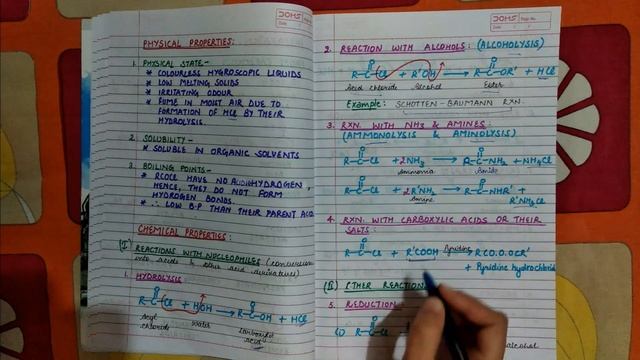 DOMS
Date
PHYSICAL PROPERTIES:
1. PHYSICAL STATE-
* COLOURLESS HYGROSCOPIC LIQUIDS
* LOW MELTING SOLIDS
* IRRITATING ODOUR
* FUME IN MOIST AIR DUE TO
FORMATION OF HCl BY THEIR
HYDROLYSIS.
2. SOLUBILITY-
* SOLUBLE IN ORGANIC SOLVENTS
3. BOILING POINTS-
* RCOCl HAVE NO ACIDIC HYDROGEN,
HENCE, THEY DO NOT FORM
HYDROGEN BONDS.
* ∴ LOW B.P THAN THEIR PARENT ACID
CHEMICAL PROPERTIES:
(I) REACTIONS WITH NUCLEOPHILES (conversion
into acids & other acid derivatives)
1. HYDROLYSIS
O
R-C-Cl + HOH → R-C-OH + HCl
Acyl chloride Water Carboxylic acid
DOMS Page No.
Date
2. REACTION WITH ALCOHOLS: (ALCOHOLYSIS)
O O
R-C-Cl + R'OH → R-C-OR' + HCl
Acid chloride Alcohol Ester
Example: SCHOTTEN-BAUMANN RXN.
3. RXN. WITH NH3 & AMINES:
(AMMONOLYSIS & AMINOLYSIS)
R-C-Cl + 2NH3 → R-C-NH2 + NH4Cl
Ammonia Amide
R-C-Cl + 2R'NH2 → R-C-NHR' +
Amine R'NH3Cl
4. RXN. WITH CARBOXYLIC ACIDS OR THEIR
SALTS:
O
R-C-Cl + R'COOH Pyridine → RCO.O.OCR'
+ Pyridine hydrochloride
(II) OTHER REACTION
5. REDUCTION
(i) R-C-
alcohol